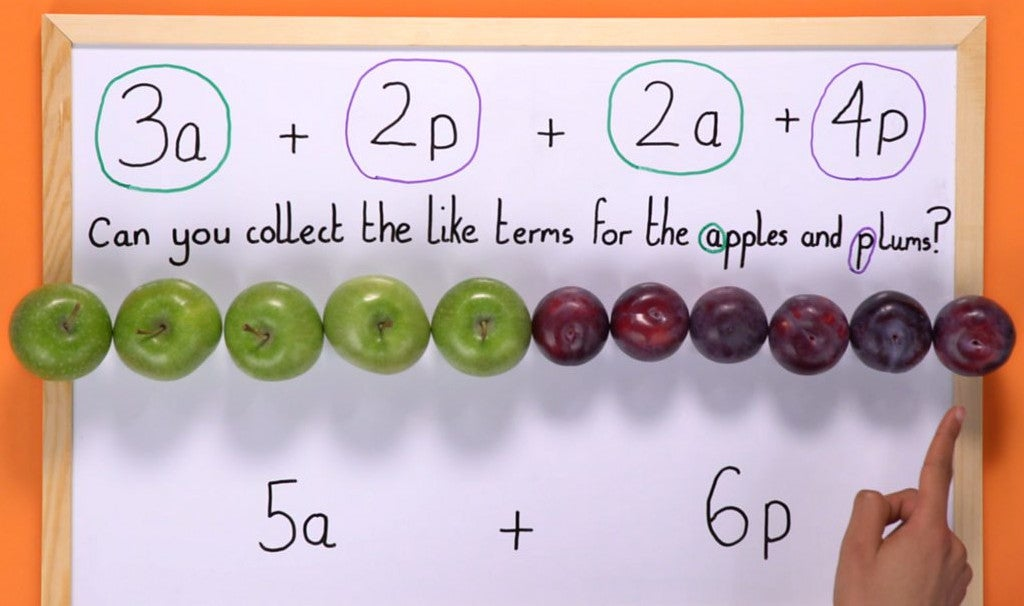 3a + 2p + 2a + 4p
Can you collect the like terms for the apples and plums?
5a + 6p